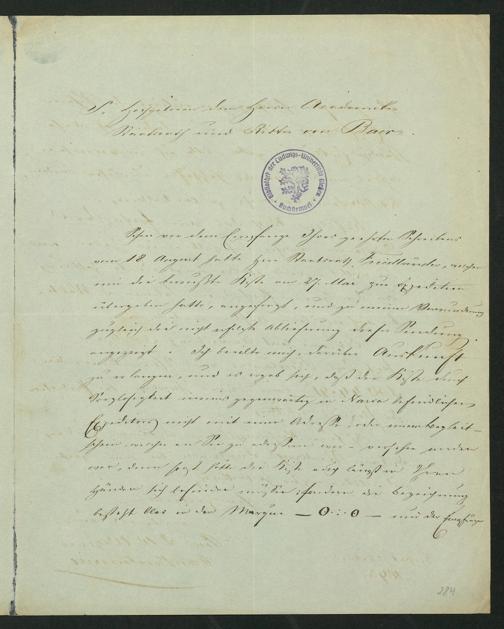 Sr Hochgeboren dem Herrn Academiker
Staatsrath und Ritter von Baer.
Bibliothek der Ludwigs-Universität Giessen
Nachlass
Schon vor dem Empfange Ihres geehrten Schreibens
vom 18 August hatte Herr Staatsrath Friedländer, welcher
mir die bewußte Kiste am 27 Mai zur Expedition
übergeben hatte, angefragt, und zu meiner Verwunderung
zugleich die nicht erfolgte Ablieferung dieser Sendung
angezeigt. Ich beeilte mich, darüber Auskunft
zu erlangen, und es ergab sich, daß die Kiste durch
Nachlässigkeit meines gegenwärtig in Narva befindlichen
Expeditors nicht mit einer Adresse, oder einem Begleit-
schein, welche an Sie zu adressiren war, versehen worden
war, denn sonst hätte die Kiste auch längst in Ihren
Händen sich befinden müssen, sondern die Bezeichnung
besteht blos in der Marque — O::O — und der Empfänger
284